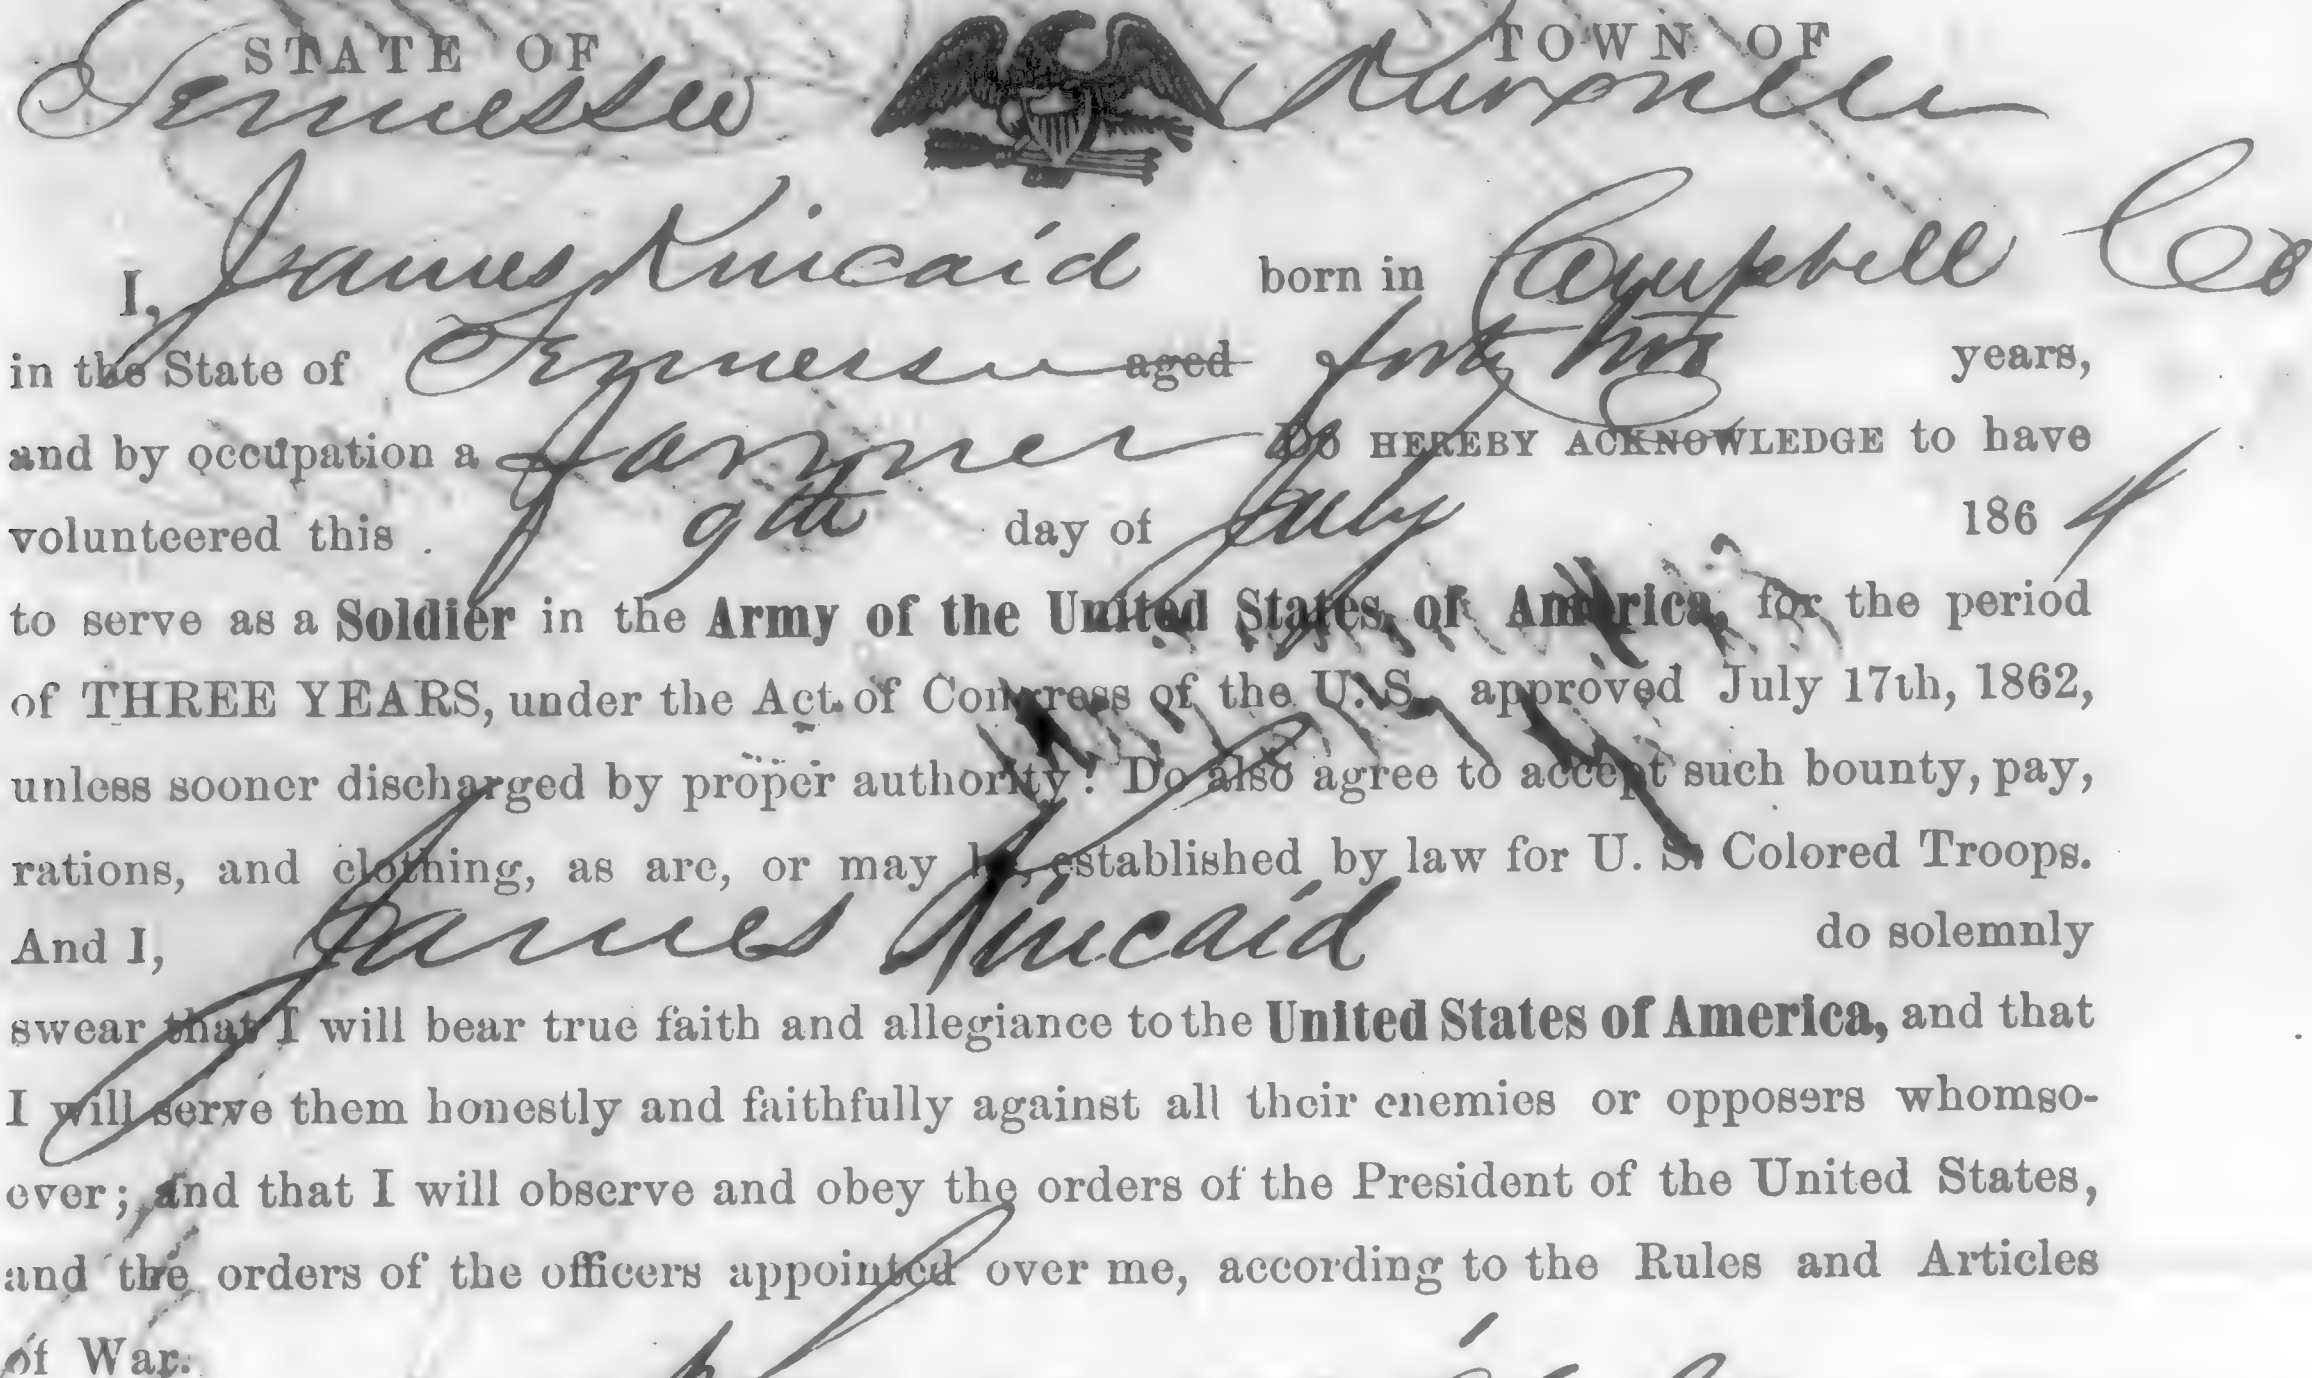 STATE OF TOWN OF
Tennessee Knoxville
I, James Kincaid born in Campbell Co
in the State of Tennessee aged forty two years,
and by occupation a farmer Do HEREBY ACKNOWLEDGE to have
volunteered this 9th day of July 1864
to serve as a Soldier in the Army of the United States of America, for the period
of THREE YEARS, under the Act of Congress of the U. S. approved July 17th, 1862,
unless sooner discharged by proper authority! Do also agree to accept such bounty, pay,
rations, and clothing, as are, or may be, established by law for U. S. Colored Troops.
And I, James Kincaid do solemnly
swear that I will bear true faith and allegiance to the United States of America, and that
I will serve them honestly and faithfully against all their enemies or opposers whomso-
ever; and that I will observe and obey the orders of the President of the United States,
and the orders of the officers appointed over me, according to the Rules and Articles
of War.